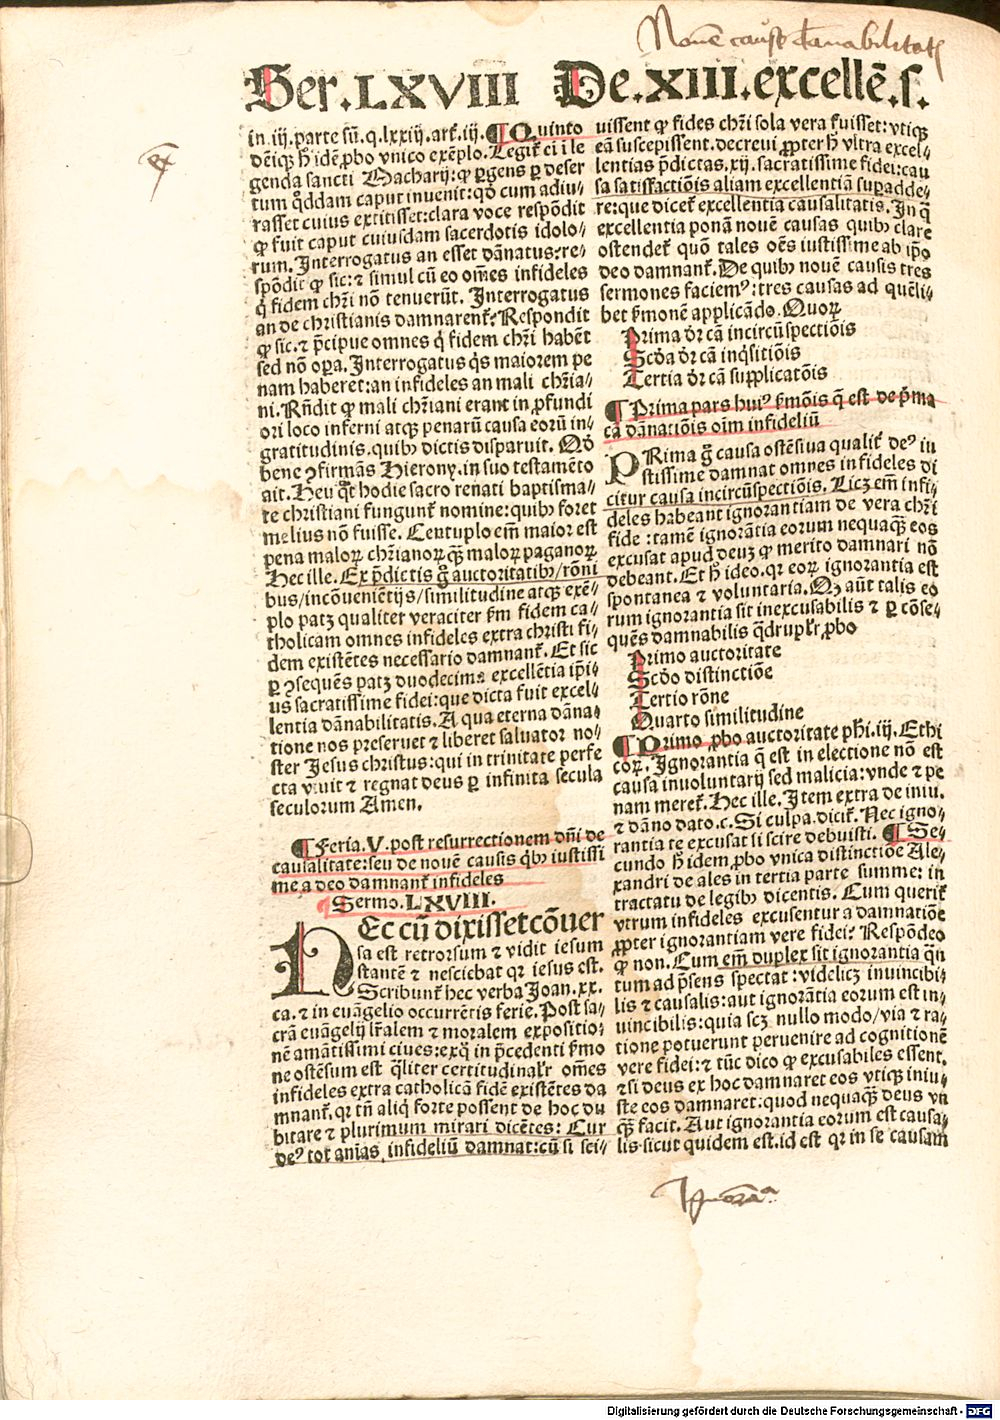 Nouē cause dānabilitatꝭ
Ser. LXVIII De. XIII. excellē. ſ.
in. iij. parte sū. q. lxxiij. art̄. iij. ¶ Quinto
dēiqꝫ h̄ idē ꝓbo vnico exēplo. Legit̄ ei i le
genda sancti Macharij: ꝙ ꝑgens ꝑ deser
tum qͦddam caput inuenit: qdͦ cum adiu⸗
rasset cuius extitisset: clara voce respōdit
ꝙ fuit caput cuiusdam sacerdotis idolo⸗
rum. Interrogatus an esset dānatus: re⸗
spōdit ꝙ sic: ⁊ simul cū eo om̄es infideles
q̇ fidem chr̄i nō tenuerūt. Interrogatus
an de christianis damnarent̄: Respondit
ꝙ sic. ⁊ p̄cipue omnes q̇ fidem chr̄i habēt
sed nō oꝑa. Interrogatus q̇s maiorem pe
nam haberet: an infideles an mali chr̄ia⸗
ni. Rn̄dit ꝙ mali chr̄iani erant in ꝓfundi
ori loco inferni atqꝫ penarū causa eorū in⸗
gratitudinis. quibꝰ dictis disparuit. Qḋ
bene ꝯfirmās Hierony. in suo testamēto
ait. Heu qͣꝫ hodie sacro renati baptisma⸗
te christiani fungunt̄ nomine: quibꝰ foret
melius nō fuisse. Centuplo em̄ maior est
pena maloꝝ chr̄ianoꝝ qͣꝫ maloꝝ paganoꝝ
Hec ille. Ex p̄dictis gͦ auctoritatibꝰ/rōni
bus/incōueniētijs/similitudine atqꝫ exē⸗
plo patꝫ qualiter veraciter ẜm fidem ca⸗
tholicam omnes infideles extra christi fi⸗
dem existētes necessario damnant̄. Et sic
ꝑ ꝯsequēs patꝫ duodecima excellētia ip̄i⸗
us sacratissime fidei: que dicta fuit excel⸗
lentia dānabilitatis. A qua eterna dāna⸗
tione nos preseruet ⁊ liberet saluator no⸗
ster Jesus christus: qui in trinitate perfe
cta viuit ⁊ regnat deus ꝑ infinita secula
seculorum Amen.
¶ Feria. V. post resurrectionem dn̄i de
causalitate: seu de nouē causis q̇bꝰ iustissi
me a deo damnant̄ infideles
¶ Sermo. LXVIII.
HEc cū dixisset cōuer
sa est retrorsum ⁊ vidit iesum
stantē ⁊ nesciebat qꝛ iesus est.
Scribunt̄ hec verba Joan. xx.
ca. ⁊ in euāgelio occurrētis ferie. Post sa⸗
crā euāgelij lr̄alem ⁊ moralem expositio⸗
nē amātissimi ciues: exq̇ in p̄cedenti ẜmo
ne ostēsum est q̄liter certitudinalr̄ om̄es
infideles extra catholicā fidē existētes da
mnant̄. qꝛ tn̄ aliq̇ forte possent de hoc du
bitare ⁊ plurimum mirari dicētes: Cur
deꝰ tot aīas infideliū damnat: cū si sci⸗
uissent ꝙ fides chr̄i sola vera fuisset: vtiqꝫ
eā suscepissent. decreui ꝓpter h̄ vltra excel⸗
lentias p̄dictas. xij. sacratissime fidei: cau
sa satisfactiōis aliam excellentiā suꝑadde⸗
re: que dicet̄ excellentia causalitatis. In q̄
excellentia ponā nouē causas quibꝰ clare
ostendet̄ quō tales oēs iustissime ab ip̄o
deo damnant̄. De quibꝰ nouē causis tres
sermones faciemꝰ: tres causas ad quēli⸗
bet ẜmonē applicādo. Quoꝝ
Prima dr̄ cā incircūspectiōis
Scd̄a dr̄ cā inq̇sitiōis
Tertia dr̄ cā supplicatōis
¶ Prima pars huiꝰ ẜmōis q̄ est de p̄ma
cā dānatiōis oīm infideliū
PRima gͦ causa ostēsiua qualit̄ deꝰ iu
stissime damnat omnes infideles di
citur causa incircūspectiōis. Licꝫ em̄ infi⸗
deles habeant ignorantiam de vera chr̄i
fide: tamē ignorātia eorum nequaqͣꝫ eos
excusat apud deuꝫ ꝙ merito damnari nō
debeant. Et h̄ ideo. qꝛ eoꝝ ignorantia est
spontanea ⁊ voluntaria. Qḋ aūt talis eo
rum ignorantia sit inexcusabilis ⁊ ꝑ cōse⸗
quēs damnabilis q̄druplr̄ ꝓbo
Primo auctoritate
Scd̄o distinctiōe
Tertio rōne
Quarto similitudine
¶ Primo ꝓbo auctoritate ph̄i. iij. Ethi
coꝝ. Ignorantia q̄ est in electione nō est
causa inuoluntarij sed malicia: vnde ⁊ pe
nam meret̄. Hec ille. Item extra de iniu.
⁊ dāno dato. c. Si culpa. dicit̄. Nec igno⸗
rantia te excusat si scire debuisti. ¶ Se⸗
cundo h̄ idem ꝓbo vnica distinctiōe Ale⸗
xandri de ales in tertia parte summe: in
tractatu de legibꝰ dicentis. Cum querit̄
vtrum infideles excusentur a damnatiōe
ꝓpter ignorantiam vere fidei: Respōdeo
ꝙ non. Cum em̄ duplex sit ignorantia q̄n
tum ad p̄sens spectat: videlicꝫ inuincibi⸗
lis ⁊ causalis: aut ignorātia eorum est in⸗
uincibilis: quia scꝫ nullo modo/via ⁊ ra⸗
tione potuerunt peruenire ad cognitionē
vere fidei: ⁊ tūc dico ꝙ excusabiles essent.
⁊ si deus ex hoc damnaret eos vtiqꝫ iniu⸗
ste eos damnaret: quod nequaqͣꝫ deus vn
qͣꝫ facit. Aut ignorantia eorum est causa⸗
lis sicut quidem est. id est qꝛ in se causam
Ignorā.ᵃ
Digitalisierung gefördert durch die Deutsche Forschungsgemeinschaft - DFG